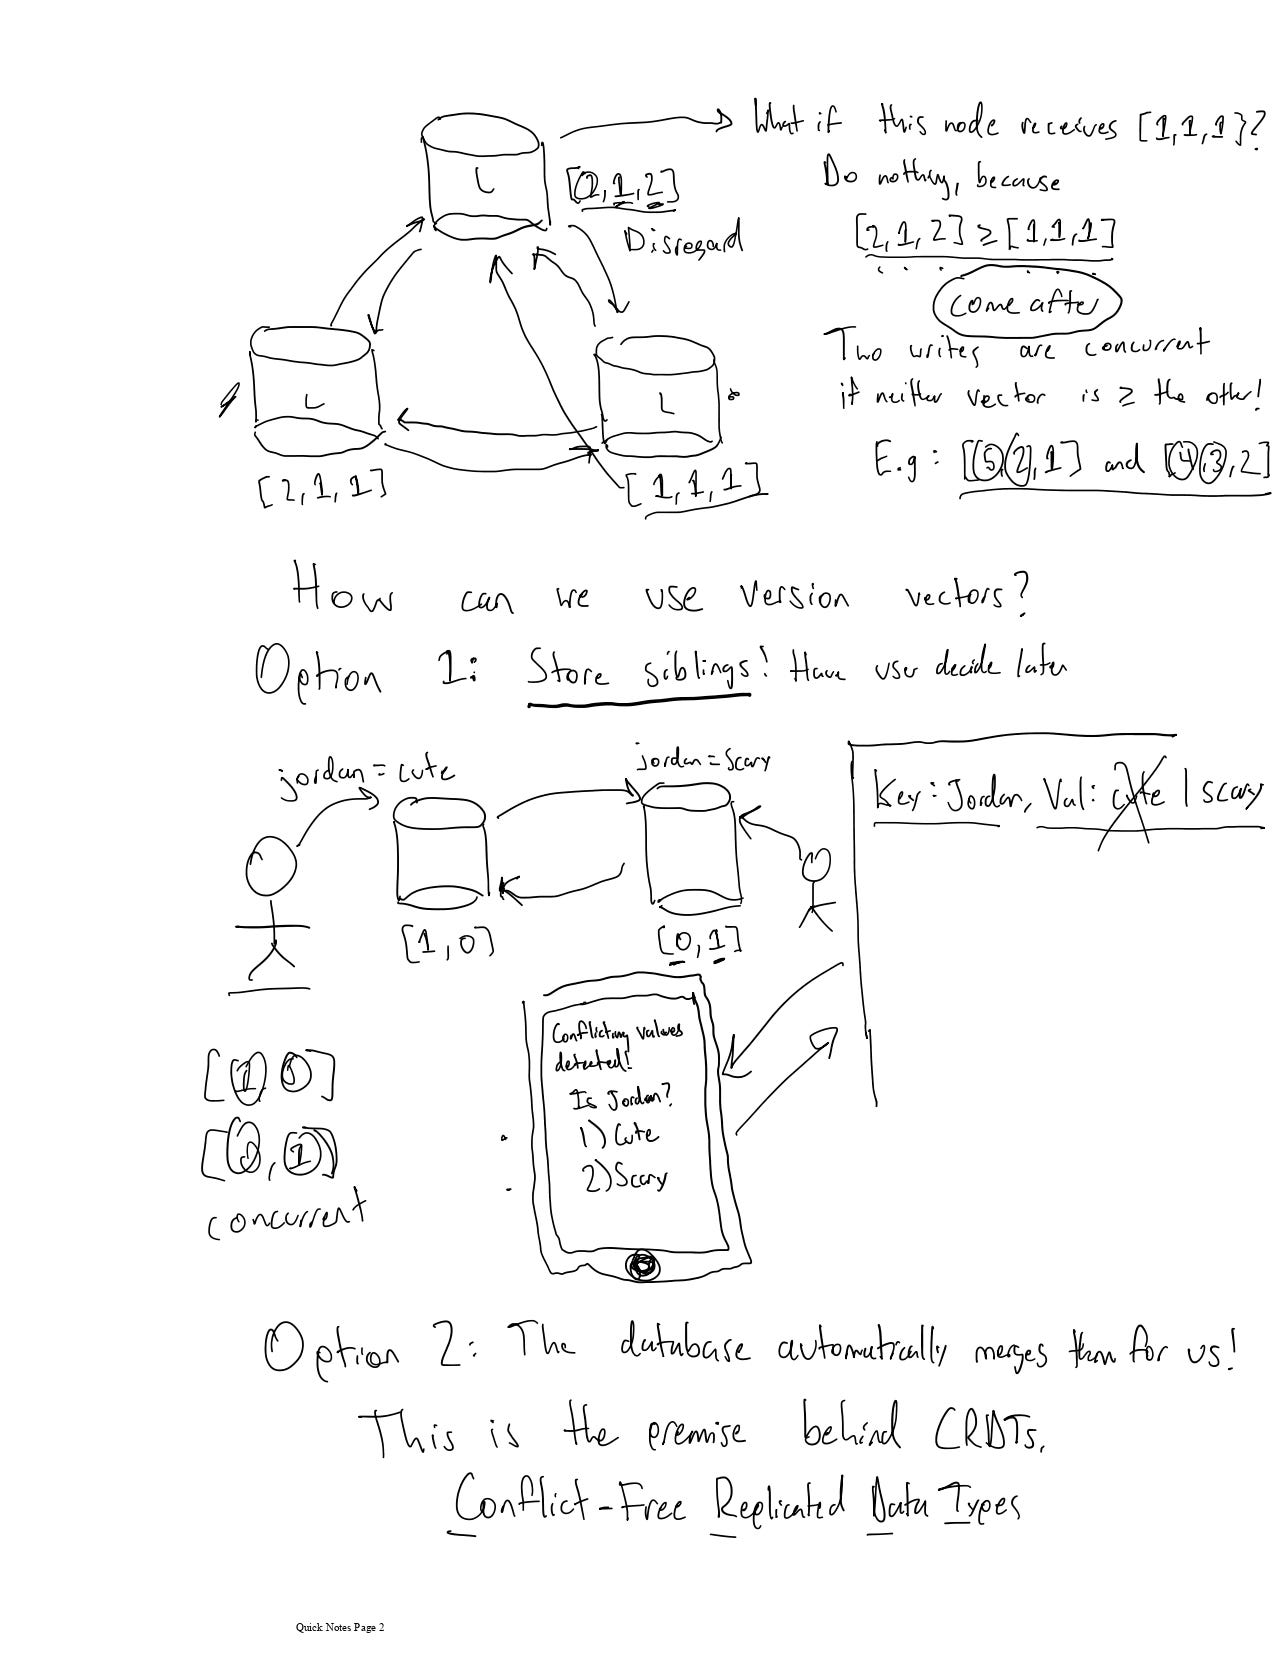 What if this node receives [1,1,1]?
L
[2,1,2]
Do nothing, because
Disregard
[2,1,2] ≥ [1,1,1]
come after
Two writes are concurrent
if neither vector is ≥ the other!
L
L
E.g: [5,2,1] and [4,3,2]
[2,1,1]
[1,1,1]
How can we use version vectors?
Option 1: Store siblings! Have user decide later
jordan = cute
jordan = scary
Key: Jordan, Val: cute | scary
[1,0]
[0,1]
Conflicting values
detected!
Is Jordan?
1) Cute
2) Scary
[1, 0]
[0, 1]
concurrent
Option 2: The database automatically merges them for us!
This is the premise behind CRDTs.
Conflict-Free Replicated Data Types
Quick Notes Page 2